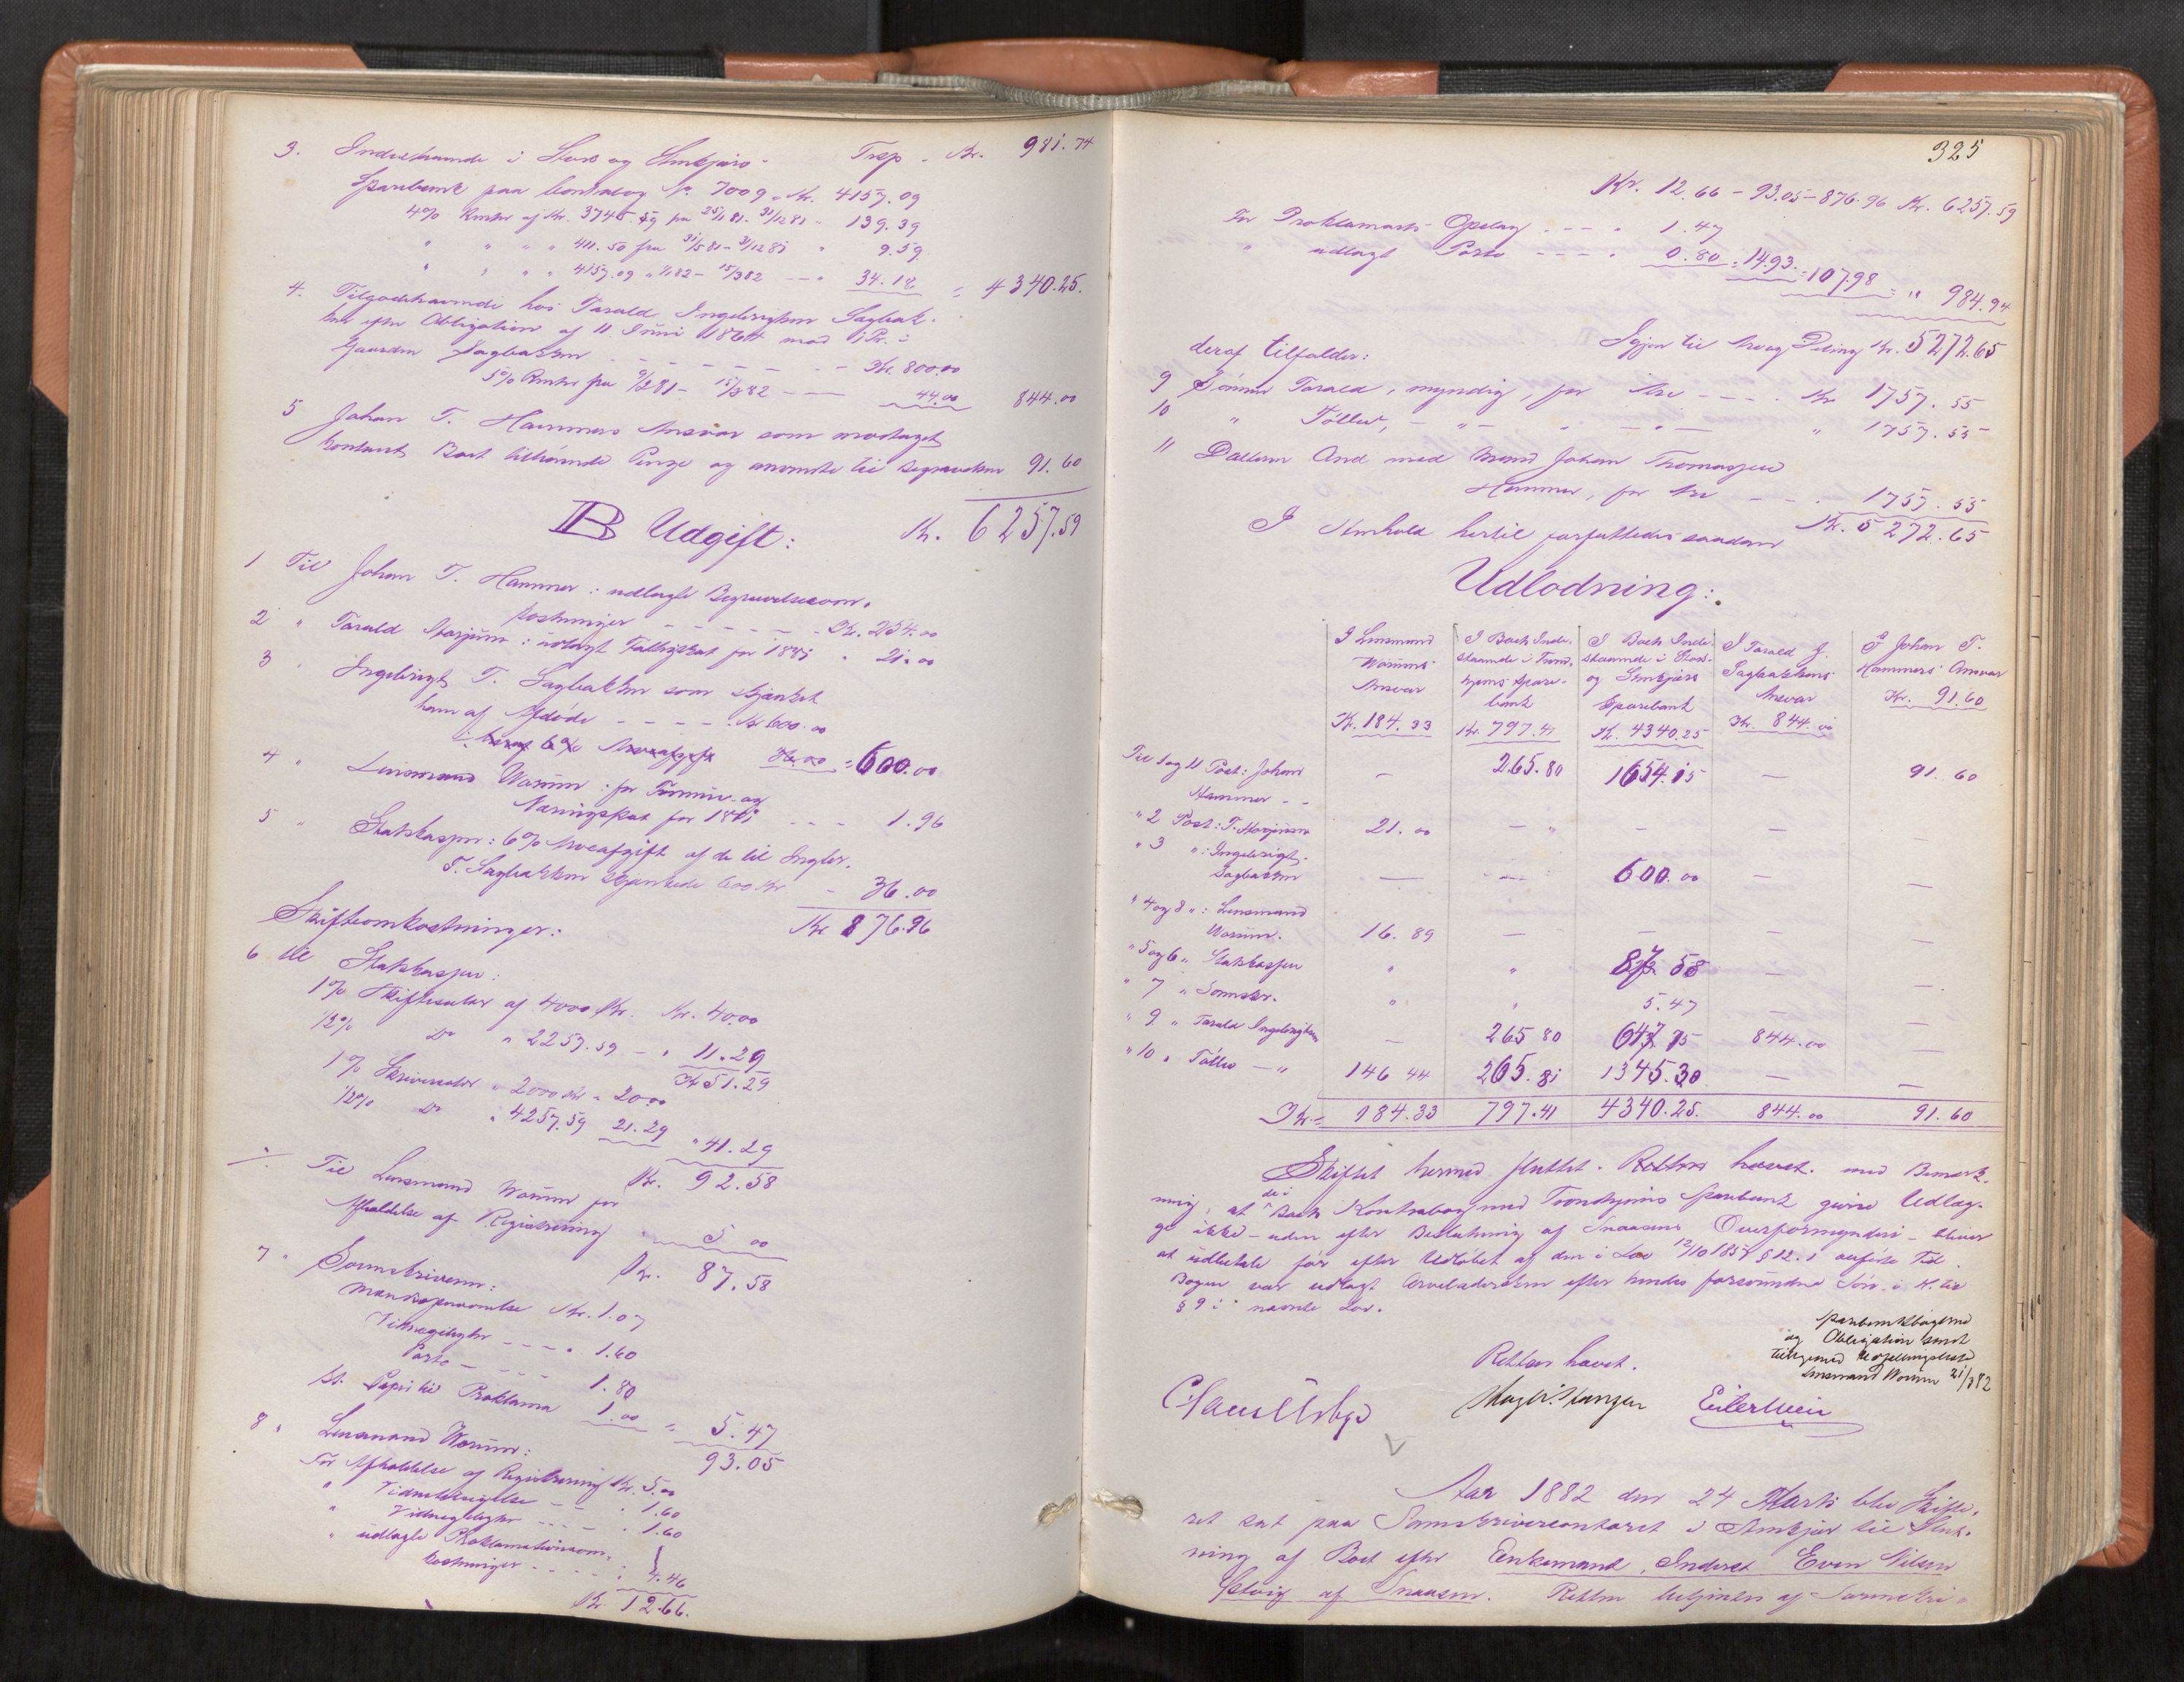 3. Indestaaende i Stod og Stenkjærs- Trsp. Kr. 981.74
Sparebank paa Contrabog No. 7009. Kr. 4157.09
4% Renter af Kr. 3745.59 fra 25/1 81- 31/12 81 " 139.39
" " " " 411.50 fra 31/5 81- 31/12 81 " 9.59
" " " " 4157.09 " 1/1 82- 15/3 82 - - " 34.18 = 4340.25.
4. Tilgodehavende hos Tarald Ingebrigtsen Sagbak-
ken efter Obligation af 11 Juni 186 med 1 Pr. i
Gaarden Sagbakken - - - - - - - Kr. 800.00
5% Renter fra 9/2 81- 15/3 82 - - 44.00 844.00
5 Johan T. Hammers Ansvar som modtaget
kontant Boet tilhørende Penge og anvendte til Begravelsen 91.60
B Udgift: Kr. 6257.59
1 Til Johan T. Hammer: udlagte Begravelsesom-
kostninger - - - - - - Kr. 254.00
2 " Tarald : udlagt Fattigskat for 1881 " 21.00
3 " Ingebrigt T. Sagbakken som skjænket
ham af Afdøde - - - - - Kr 600.00
heraf 6% Arveafgift 36.00 = 600.00
4 " Lensmand Worum: for - og
Næringsskat for 1881 - - - 1.96
5 " Statskassen: 6% Arveafgift af de til Ingbr.
T. Sagbakken skjænkede 600 Kr - 36.00
Kr 876.96
Skifteomkostninger:
6 til Statskassen:
1% Skiftesalær af 4000 Kr. Kr. 40.00
1/2% Do " 2257.59 - " 11.29
Kr 51.29
1% Skriversalær " 2000 Kr " 20.00
1/2% Do " 4257.59 21.29 " 41.29
Kr. 92.58
÷ Til Lensmand Worum for
Afholdelse af Registrering " 5 00
Kr. 87.58
7 " Sorenskriveren:
Mandsopnævnelse Kr. 1.07
Vidnegebyhr - - - " 1.60
Porto - - - - 1.80
St. Papir til Proklama 1.00 = 5.47
93.05
8 " Lensmand Worum:
For Afholdelse af Registrering Kr. 5.00
" Vidnetilsigelse - - " 1.60
" Vidnegebyhr - - - " 1.60
" udlagte Proklamationsom-
kostninger - - - - : 4.46
Kr 12.66.
325
Kr. 12.66 - 93.05 - 876.96 Kr. 6257.59
For Proklamaets Opslag - - - " 1.47
" udlagt Porto - - - - " 0.80 = 14.93. = 107.98 = " 984.94
Igjen til Arv og Deling Kr. 5272.65
deraf tilfalder:
9 Sønnen Tarald, myndig, for Arv - - - - Kr 1757.55
10 " Tollev, - " - " - " - " 1757.55
11 Datteren And med Mand Johan Thomassen
Hammer, for Arv - - - - 1757.55
Kr. 5272.65
I Henhold hertil forfattedes saadan
Udlodning:
I Lensmand Worums Ansvar Kr. 184.33
I Boets Indestaaende i Trondhjems Sparebank Kr. 797.41
I Boets Indestaaende i Stod- og Stenkjærs Sparebank Kr. 4340.25
I Tarald I. Sagbakkens Ansvar Kr. 844.00
I Johan T. Hammers Ansvar Kr. 91.60
Til 1 og 11 Post: Johan
Hammer - - — 265.80 1654.15 — 91.60
" 2 Post: T. 21.00 — " — —
" 3 " : Ingebrigt
Sagbakken — — 600.00 — —
" 4 og 8 " : Lensmand
Worum. 16.89 — — — —
" 5 og 6 " Statskassen " " 87 58 — —
" 7 " Sorenskr. " " 5.47 — —
" 9 " Tarald Ingebrigtsen — 265 80 647 75 844.00 —
" 10 " Tollev — " 146 44 265.81 1345.30 — —
Kr. = 184.33 797.41 4340.25. 844.00 91.60
Skiftet hermed sluttet. Retten hævet. med Bemærk-
ning, at de i Boets Kontrabog med Trondhjems Sparebank givne Udlæg-
ge ikke - uden efter Beslutning af Snaasens Overformynderi - bliver
at udbetale før efter Udløbet af den i Lov 12/10 1857 § 12.1 anførte Tid.
Bogen var udlagt Arveladersken efter hendes forsvundne Søn i H. til
§ 9 i nævnte Lov.
Sparebankbøgerne
og Obligation samt
tilligemed
Lensmand Worum 21/3 82
Retten hævet.
Eiler
Aar 1882 den 24 Marts blev Skifte-
ret sat paa Sorenskrivercontoret i Stenkjær til Slut-
ning af Boet efter Enkemand, Inderst Even Nilsen
af Snaasen. Retten betjentes af Sorenskri-